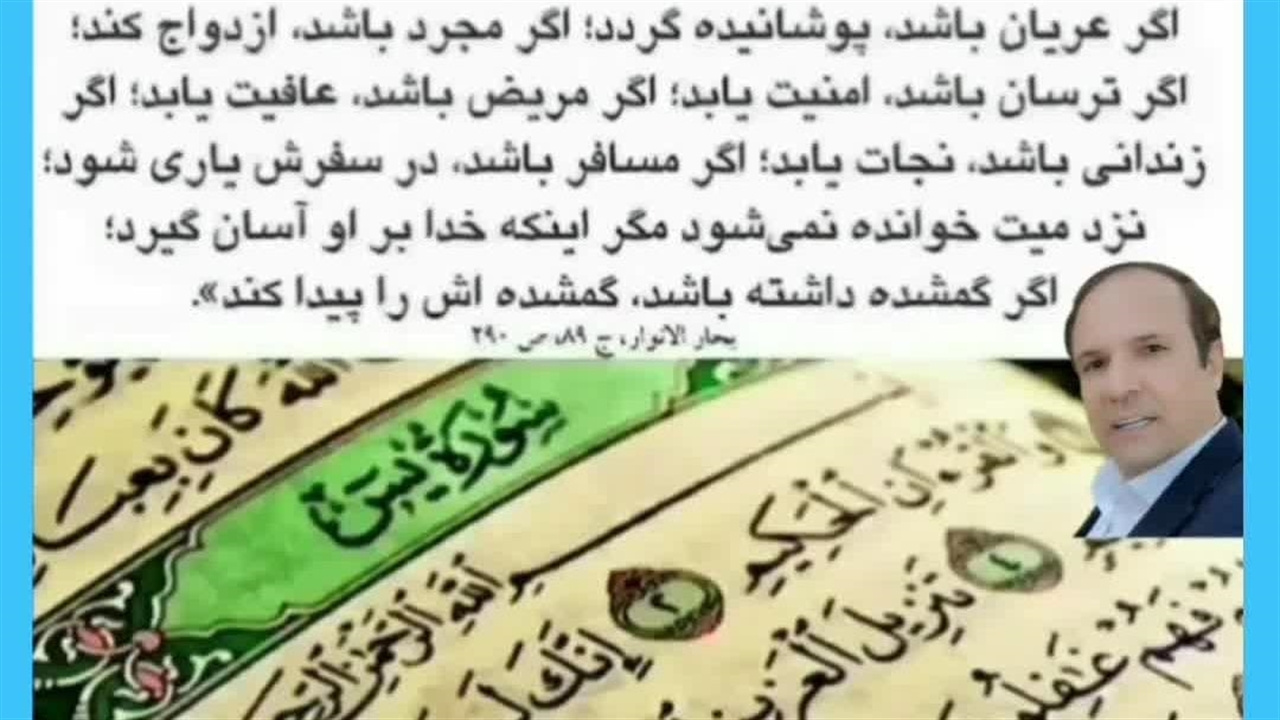 اگر عریان باشد، پوشانیده گردد؛ اگر مجرد باشد، ازدواج کند؛
اگر ترسان باشد، امنیت یابد؛ اگر مریض باشد، عافیت یابد؛ اگر
زندانی باشد، نجات یابد؛ اگر مسافر باشد، در سفرش یاری شود؛
نزد میت خوانده نمی‌شود مگر اینکه خدا بر او آسان گیرد؛
اگر گمشده داشته باشد، گمشده اش را پیدا کند».
بحار الانوار، ج ۸۹، ص ۲۹۰
ٱللَّهَ كَانَ بِعِبَا
سُورَةُ يسٓ
ٱللَّهِ ٱلرَّحْمَٰنِ
وَٱلْقُرْءَانِ ٱلْحَكِيمِ
٢
إِنَّكَ لَ
٤
تَنزِيلَ ٱلْعَزِيزِ
غَٰفِلُو